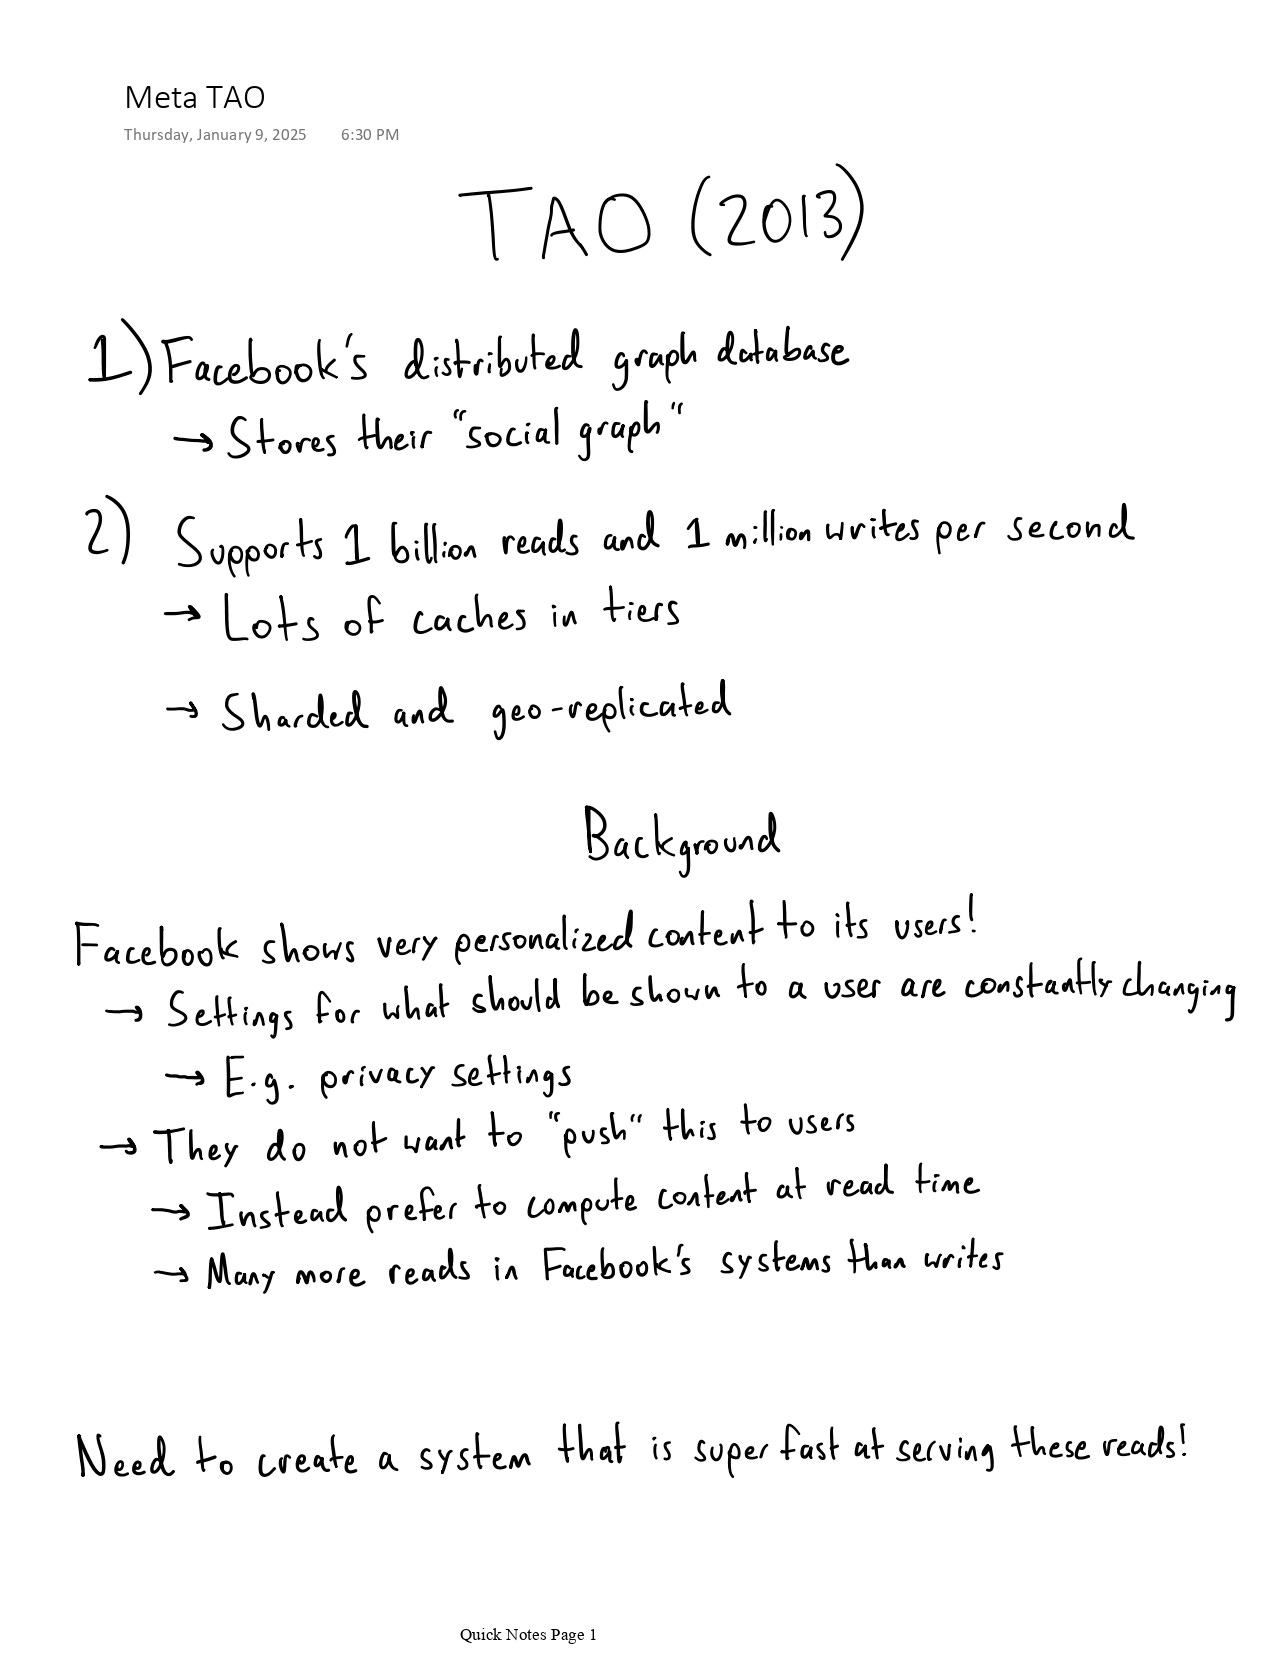 Meta TAO
Thursday, January 9, 2025 6:30 PM
TAO (2013)
1) Facebook's distributed graph database
→ Stores their "social graph"
2) Supports 1 billion reads and 1 million writes per second
→ Lots of caches in tiers
→ Sharded and geo-replicated
Background
Facebook shows very personalized content to its users!
→ Settings for what should be shown to a user are constantly changing
→ E.g. privacy settings
→ They do not want to "push" this to users
→ Instead prefer to compute content at read time
→ Many more reads in Facebook's systems than writes
Need to create a system that is super fast at serving these reads!
Quick Notes Page 1